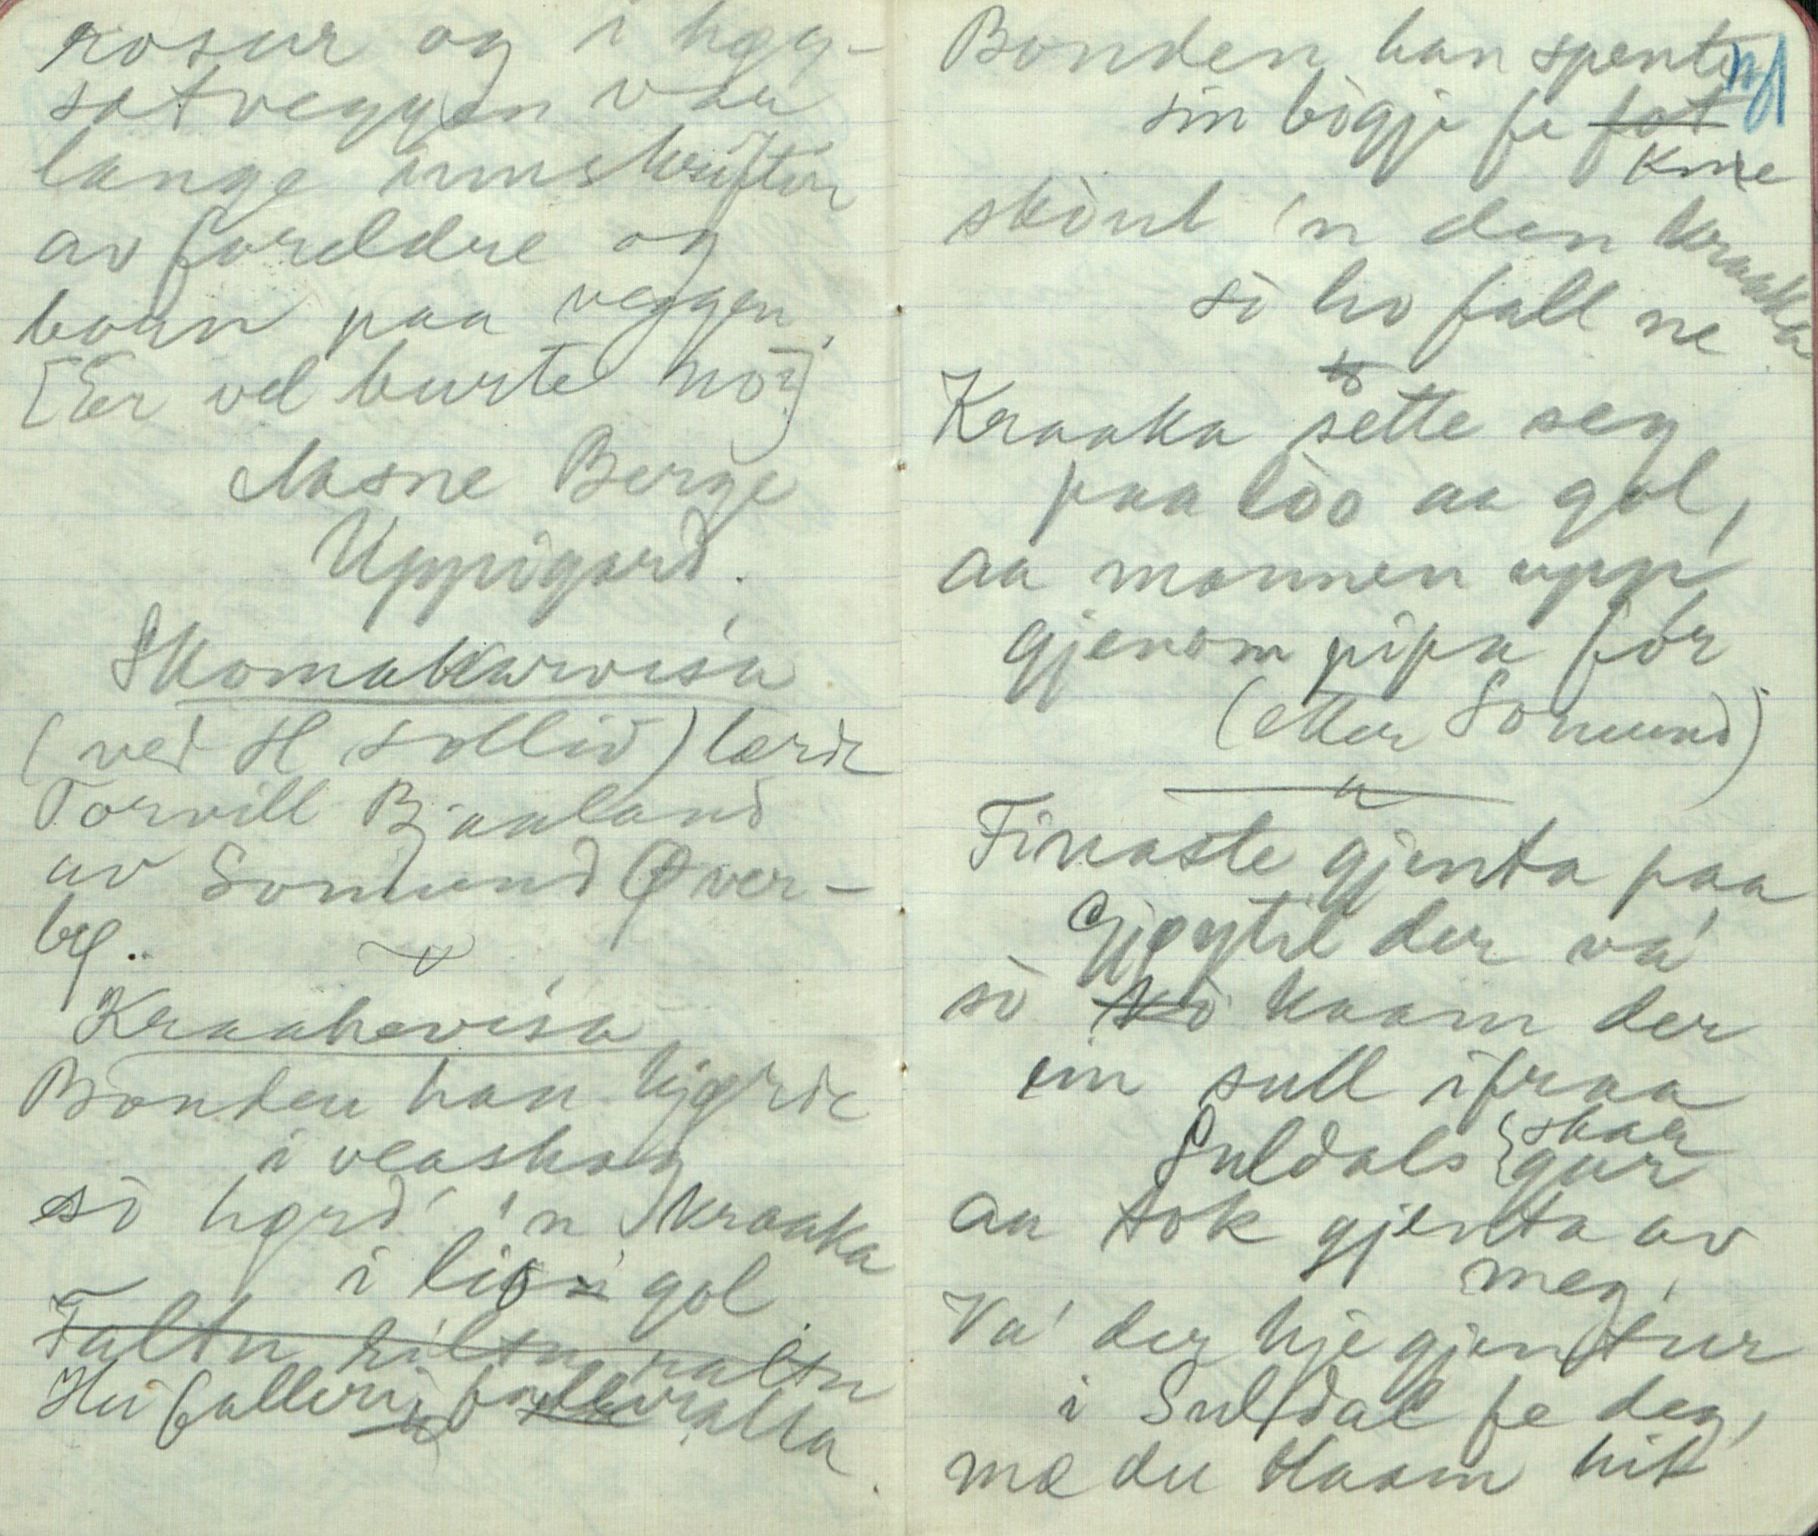 rosur og i høg-
sætveggen var
lange innskrifter
av foreldre og
born paa veggen.
[Er vel burte nó?]
Aasne Berge
Uppigard.
Skomakarvisa
(ved H Sollid) lærde
Torvill Bjaaland
av Somund Øver-
bø..
Kraakevisa
Bonden han kjørde
i veaskog
sò hørd' 'n kraaka
i lio gol.
Faltu riltu raltu
Hei falleri falleralla.
Bonden han spente
sin bògje fe fot
kne
skòut 'n den kraaka
sò ho fall ne
Kraaka sette seg
paa lòo aa gol,
aa mannen upp
gjenom pipa fór
(etter Somund)
Finaste gjenta paa
Gjøytil der va'
sò kaam der
ein sull ifraa
Suldals skar
gar
aa tok gjenta av
meg,
Va' der kje gjentur
i Suldal fe deg,
mæ du kaam hit